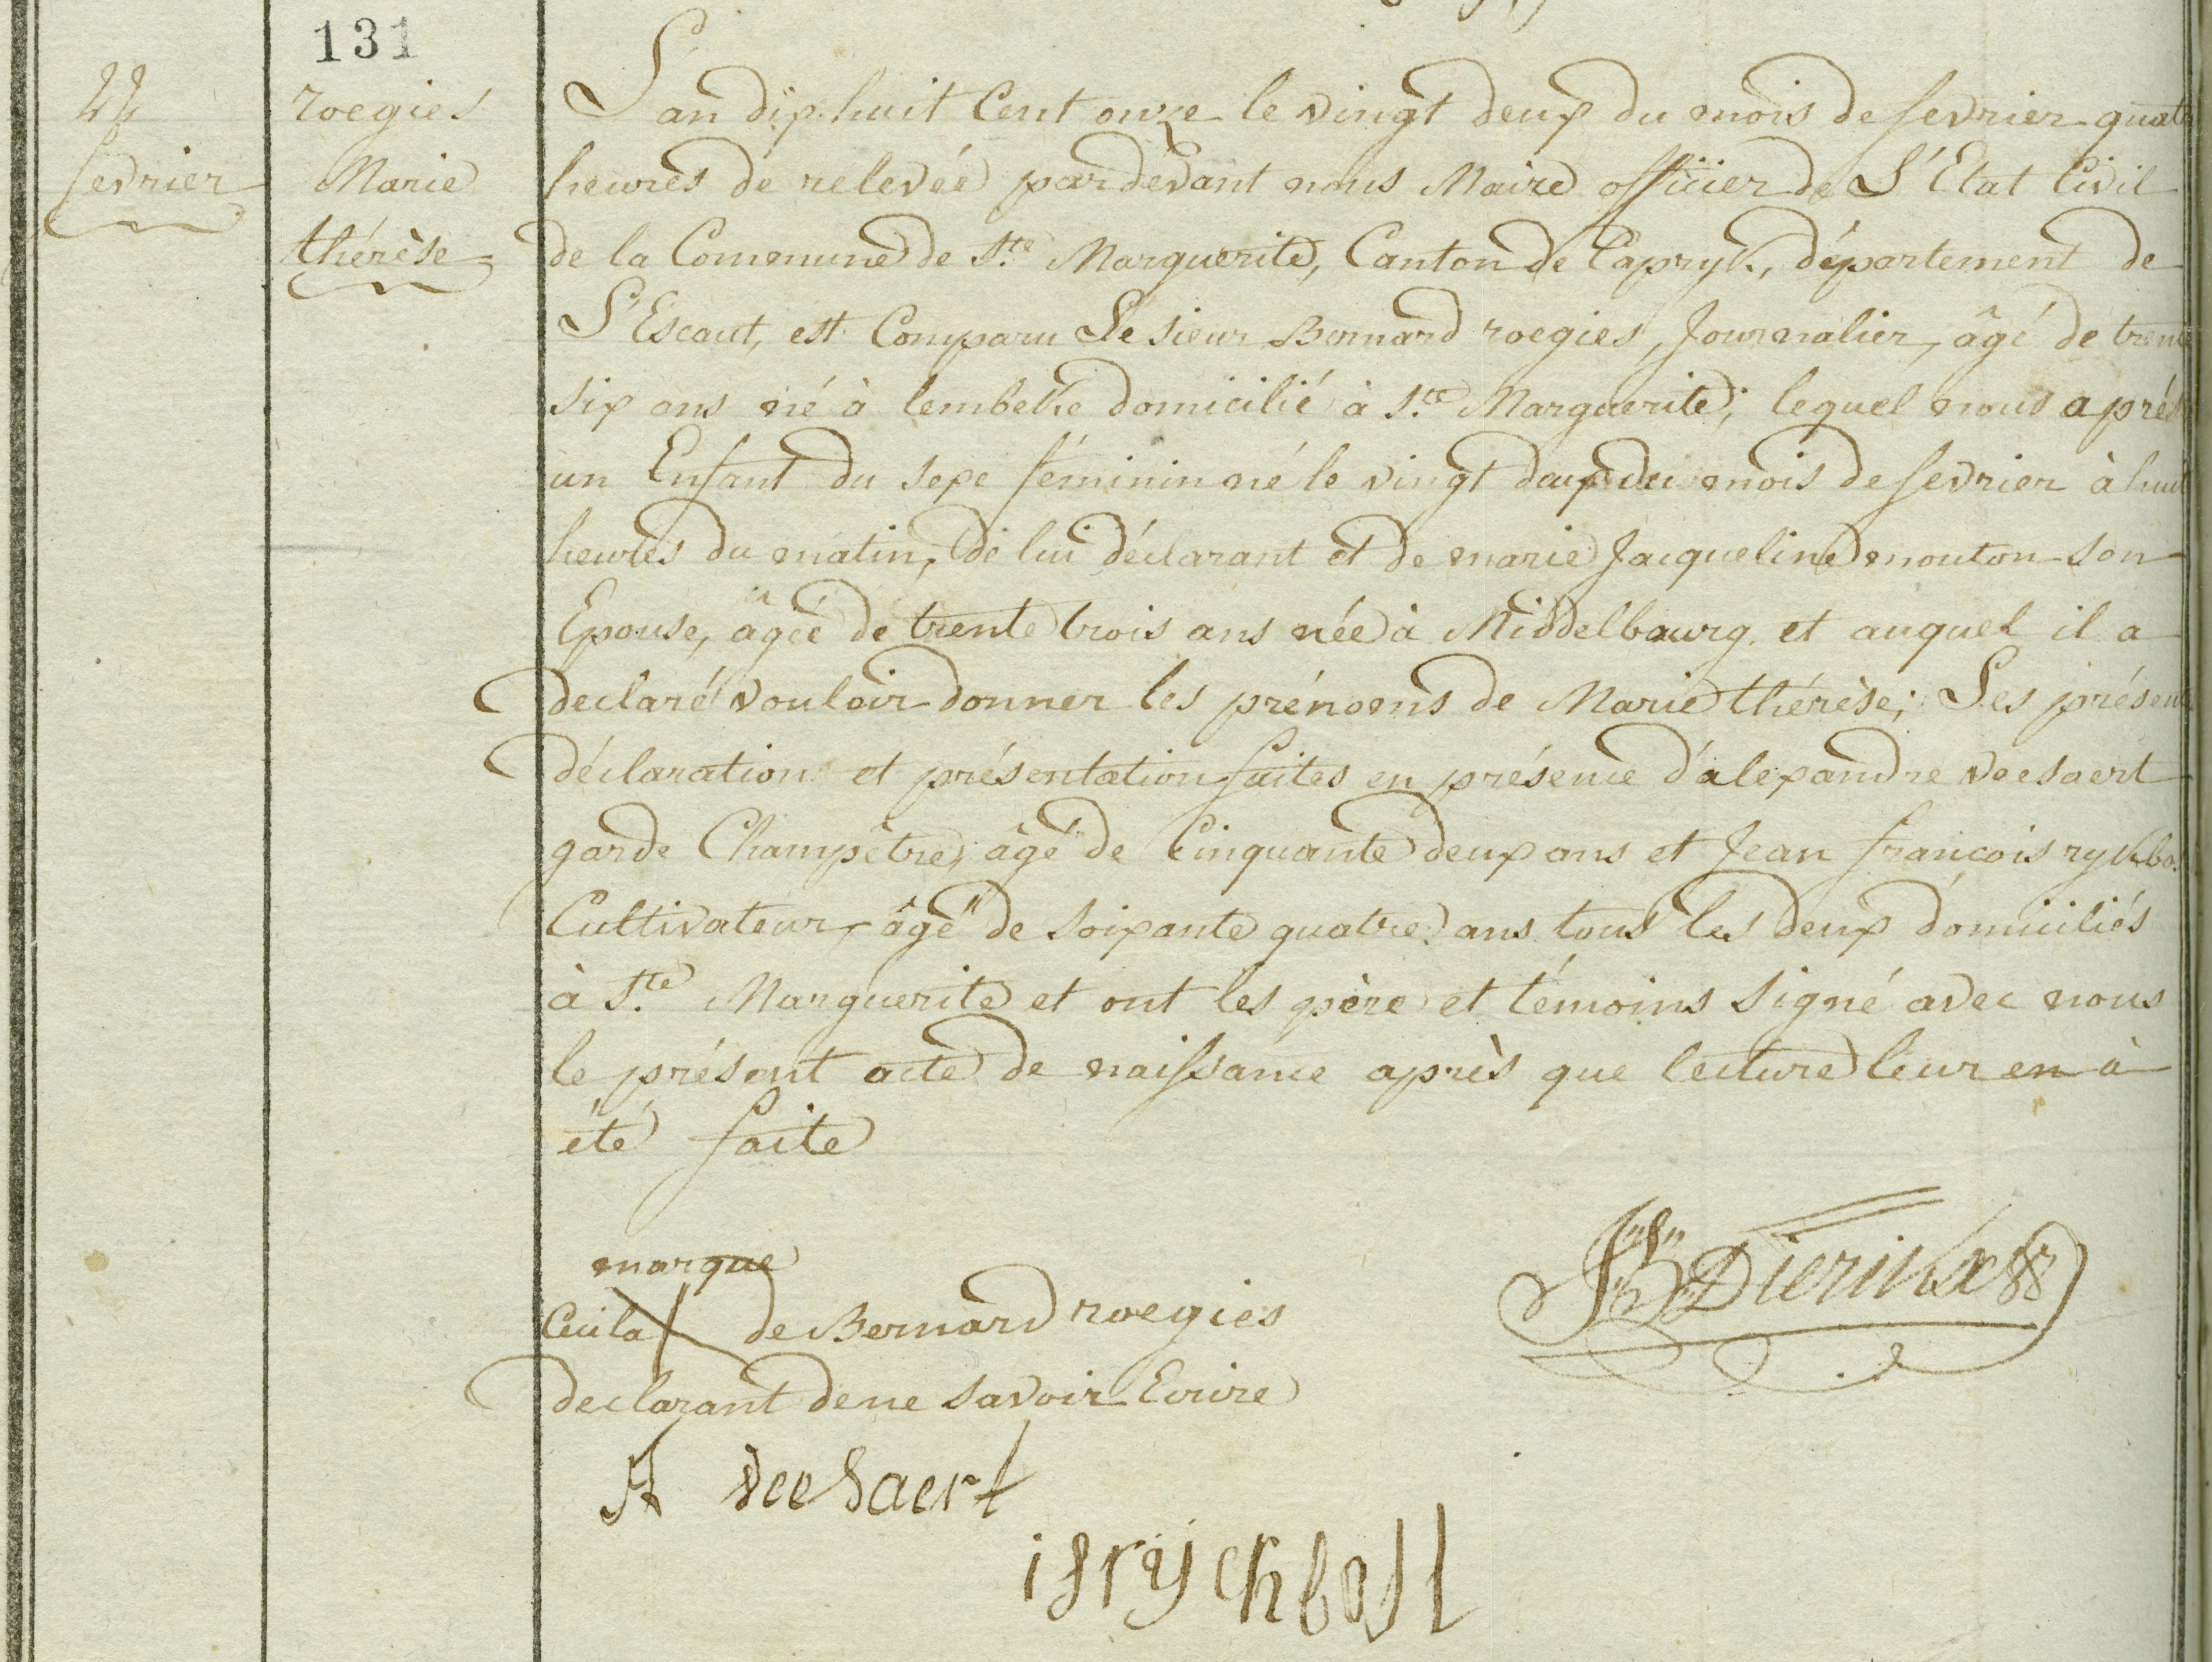 131
22
fevrier
roegies
Marie
thérèse
L'an dix huit Cent onze le vingt deux du mois de fevrier quat
heures de relevée par devant nous Maire officier de L'Etat Civil
de la Commune de Ste Marguerite, Canton de Capryk, département de
L'Escaut, est Comparu Le sieur Bernard roegies, Journalier, âgé de trente
six ans né à lembeke domicilié à Ste Marguerite; lequel nous a prés
un Enfant du sexe féminin né le vingt deux du mois de fevrier à huit
heures du matin, de lui déclarant et de marie Jacqueline mouton son
Epouse, âgée de trente trois ans née à Middelbourg et auquel il a
declaré vouloir donner les prénoms de Marie thérèse; Les présent
déclaration et présentation faites en présence d'alexandre veesaert
garde Champêtre, âgé de Cinquante deux ans et Jean francois rykbo
Cultivateur, âgé de soixante quatre ans tous les deux domiciliés
à Ste Marguerite et ont les père et témoins signé avec nous
le présent acte de naissance après que lecture leur en à
été faite
marque
Ceci la de Bernard roegies
declarant de ne savoir Ecrire
JB Dierickx
A VeeSaert
i f ryckbost